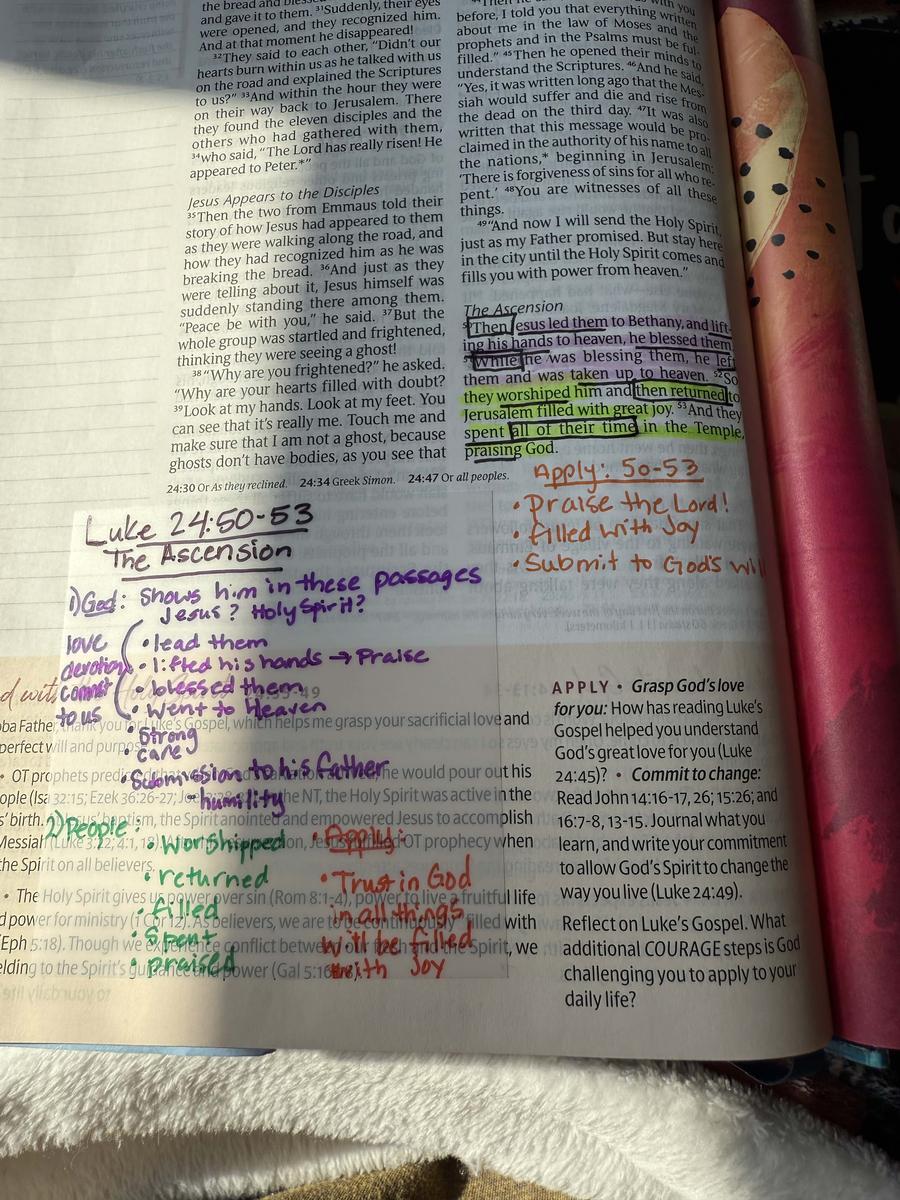 the bread and blessed
and gave it to them. 31Suddenly, their eyes
were opened, and they recognized him.
And at that moment he disappeared!
32They said to each other, “Didn’t our
hearts burn within us as he talked with us
on the road and explained the Scriptures
to us?” 33And within the hour they were
on their way back to Jerusalem. There
they found the eleven disciples and the
others who had gathered with them,
34who said, “The Lord has really risen! He
appeared to Peter.*”
Jesus Appears to the Disciples
35Then the two from Emmaus told their
story of how Jesus had appeared to them
as they were walking along the road, and
how they had recognized him as he was
breaking the bread. 36And just as they
were telling about it, Jesus himself was
suddenly standing there among them.
“Peace be with you,” he said. 37But the
whole group was startled and frightened,
thinking they were seeing a ghost!
38“Why are you frightened?” he asked.
“Why are your hearts filled with doubt?
39Look at my hands. Look at my feet. You
can see that it’s really me. Touch me and
make sure that I am not a ghost, because
ghosts don’t have bodies, as you see that
with you
before, I told you that everything written
about me in the law of Moses and the
prophets and in the Psalms must be ful-
filled.” 45Then he opened their minds to
understand the Scriptures. 46And he said,
“Yes, it was written long ago that the Mes-
siah would suffer and die and rise from
the dead on the third day. 47It was also
written that this message would be pro-
claimed in the authority of his name to all
the nations,* beginning in Jerusalem:
‘There is forgiveness of sins for all who re-
pent.’ 48You are witnesses of all these
things.
49“And now I will send the Holy Spirit,
just as my Father promised. But stay here
in the city until the Holy Spirit comes and
fills you with power from heaven.”
The Ascension
Then Jesus led them to Bethany, and lift-
ing his hands to heaven, he blessed them.
While he was blessing them, he left
them and was taken up to heaven. 52So
they worshiped him and then returned to
Jerusalem filled with great joy. 53And they
spent all of their time in the Temple,
praising God.
24:30 Or As they reclined. 24:34 Greek Simon. 24:47 Or all peoples.
Apply: 50-53
• Praise the Lord!
• filled with Joy
• Submit to God's will
Luke 24:50-53
The Ascension
1) God: Shows him in these passages
Jesus? Holy Spirit?
love
devotion
commit
to us
• lead them
• lifted his hands → Praise
• blessed them
• Went to Heaven
• Strong
• care
• Submission to his father
- humility
2) People:
• Worshipped
• returned
• filled
• Spent
• praised
• Apply:
• Trust in God
in all things
will be filled
with Joy
d with
-49
oba Father, thank you for Luke’s Gospel, which helps me grasp your sacrificial love and
perfect will and purpos
• OT prophets predic he would pour out his
ople (Isa 32:15; Ezek 36:26-27; the NT, the Holy Spirit was active in the
s’ birth. baptism, the Spirit anointed and empowered Jesus to accomplish
Messiah (Luke 3:22, 4:1, OT prophecy when
the Spirit on all believers.
• The Holy Spirit gives us power over sin (Rom 8:1-4), power to live a fruitful life
d power for ministry As believers, we are to filled with
Eph 5:18). Though we experience conflict Spirit, we
elding to the Spirit’s guidance and power
APPLY • Grasp God’s love
for you: How has reading Luke’s
Gospel helped you understand
God’s great love for you (Luke
24:45)? • Commit to change:
Read John 14:16-17, 26; 15:26; and
16:7-8, 13-15. Journal what you
learn, and write your commitment
to allow God’s Spirit to change the
way you live (Luke 24:49).
Reflect on Luke’s Gospel. What
additional COURAGE steps is God
challenging you to apply to your
daily life?